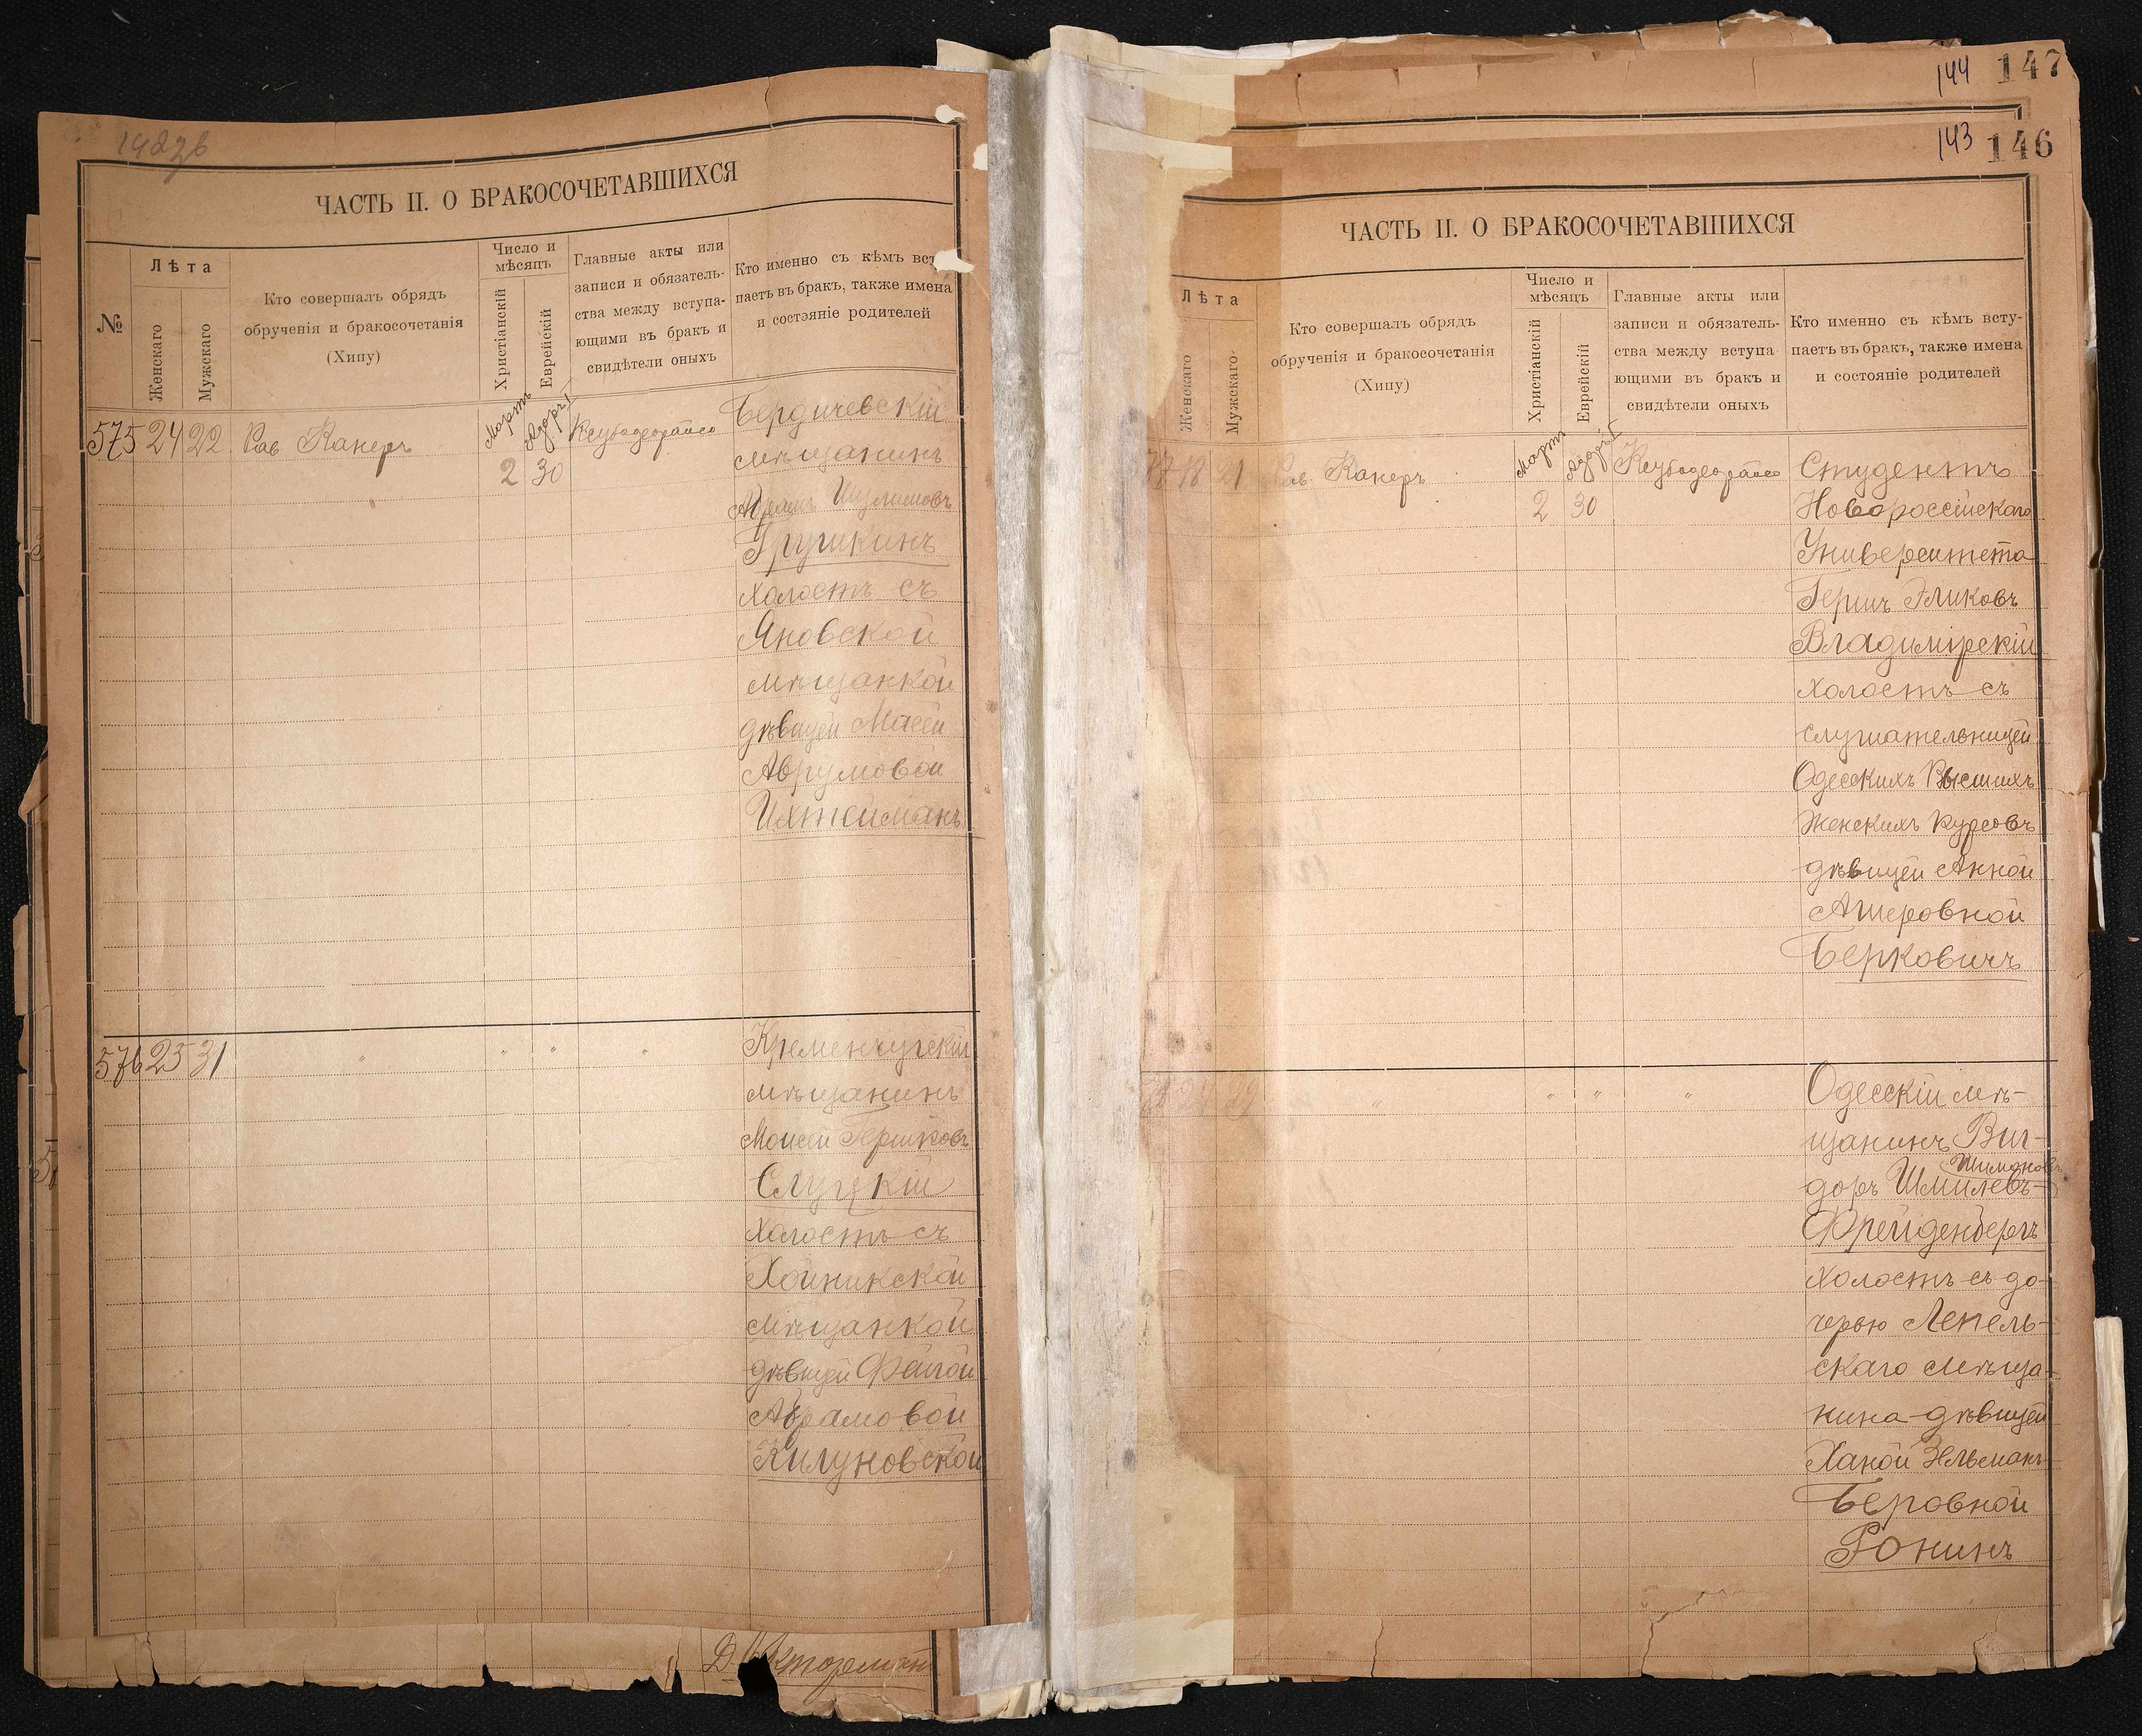 ЧАСТЬ II. О БРАКОСОЧЕТАВШИХСЯ
№
Лѣта
Женскаго
Мужскаго
Кто совершалъ обрядъ
обрученія и бракосочетанія
(Хипу)
Число и
мѣсяцъ
Христіанскій
Еврейскій
Главные акты или
записи и обязатель-
ства между вступа-
ющими въ бракъ и
свидѣтели оныхъ
Кто именно съ кѣмъ вст
паетъ въ бракъ, также имена
и состояніе родителей
575 24 22 Рав Канеръ
Мартъ
2
Адаръ I
30
Бердичевскій
мѣщанинъ
Шулимовъ
Грушкинъ
холостъ съ
Яновской
мѣщанкой
дѣвицей Масей
Аврумовой
Ихтейманъ
576 25 31 " " " "
Кременчугскій
мѣщанинъ
Моисей Гершковъ
Слуцкій
холостъ съ
Хойникской
мѣщанкой
дѣвицей Фейгой
Абрамовой
Килуновской
144 147
143 146
ЧАСТЬ II. О БРАКОСОЧЕТАВШИХСЯ
Лѣта
Женскаго
Мужскаго
Кто совершалъ обрядъ
обрученія и бракосочетанія
(Хипу)
Число и
мѣсяцъ
Христіанскій
Еврейскій
Главные акты или
записи и обязатель-
ства между вступа
ющими въ бракъ и
свидѣтели оныхъ
Кто именно съ кѣмъ всту-
паетъ въ бракъ, также имена
и состояніе родителей
18 21 Рав Канеръ
Мартъ
2
Адаръ I
30
Студентъ
Новороссійскаго
Университета
Гершъ Эликовъ
Владимірскій
холостъ съ
слушательницей
Одесскихъ Высшихъ
Женскихъ Курсовъ
дѣвицей Анной
Ашеровной
Берковичъ
24 29 " " " "
Одесскій мѣ-
щанинъ Виг-
Шимонов
доръ Шмилевъ
Фрейденбергъ
холостъ съ до-
черью Лепель-
скаго мѣща-
нина дѣвицей
Ханой Зельманъ
Беровной
Ронинъ